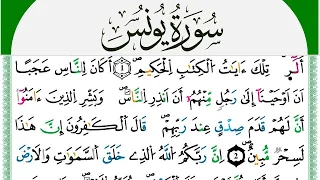 سُورَةُ يُونُسَ
الٓرۚ تِلْكَ ءَايَٰتُ اُ۬لْكِتَٰبِ اِ۬لْحَكِيمِۖ ۝١ أَكَانَ لِلنَّاسِ عَجَبًا
اَنَ اَوْحَيْنَآ إِلَىٰ رَجُلٖ مِّنْهُمُۥٓ أَنَ اَنذِرِ اِ۬لنَّاسَۖ وَبَشِّرِ اِ۬لذِينَ ءَامَنُوٓاْ
أَنَّ لَهُمْ قَدَمَ صِدْقٍ عِندَ رَبِّهِمْۖ قَالَ اَ۬لْكَٰفِرُونَ إِنَّ هَٰذَا
لَسِحْرٞ مُّبِينٌۖ ۝٢ إِنَّ رَبَّكُمُ اُ۬للَّهُ اُ۬لذِے خَلَقَ اَ۬لسَّمَٰوَٰتِ وَالَارْضَ